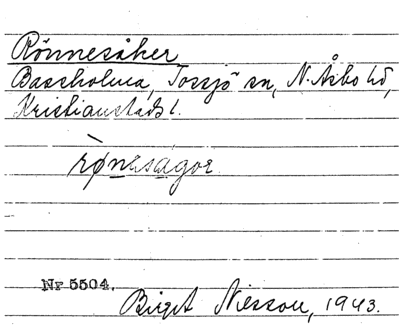 Rönnesåker
Bassholma, Tossjö sn, N. Åsbo hd,
Kristianstads l.
rønesagor
Nr 5504.
Birgit Nilsson, 1943.